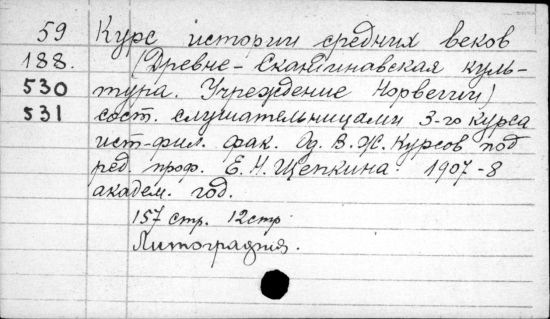 59 Курс истории средних веков
188. (Древне-Скандинавская куль-
530 тура. Учреждение Норвегии)
531 сост. слушательницами 3-го курса
ист-фил. фак. Од. В. Ж. Курсов под
ред проф. Е. Н. Щепкина. 1907-8
академ. год.
157 стр. 12 стр
Литография.